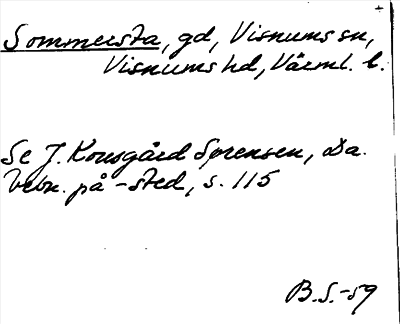 Sommersta, gd, Visnums sn,
Visnums hd, Värml. l.
Se J. Kousgård Sørensen, Da.
bebn. på -sted, s. 115
B.S.-59